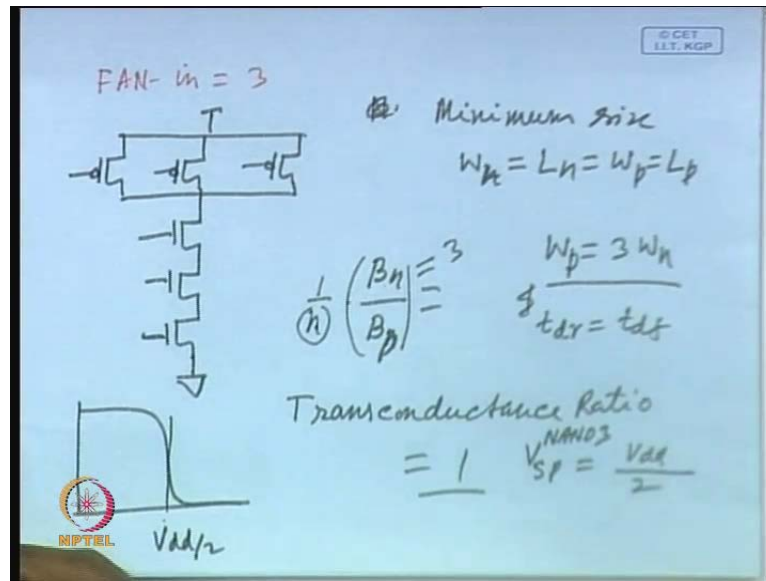 © CET
I.I.T. KGP
FAN-in = 3
Minimum size
Wn = Ln = Wp = Lp
1/n (Bn/Bp) = 3
Wp = 3 Wn
tdr = tdf
Transconductance Ratio
= 1
VSP NAND3 = Vdd/2
Vdd/2
NPTEL